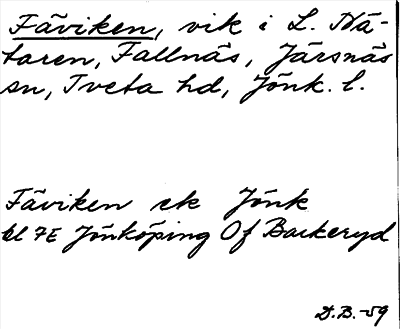 Fäviken, vik i L. Nä-
taren, Fallnäs, Järsnäs
sn, Tveta hd, Jönk. l.
Fäviken ek Jönk
bl 7E Jönköping Of Backeryd
D.B.-59